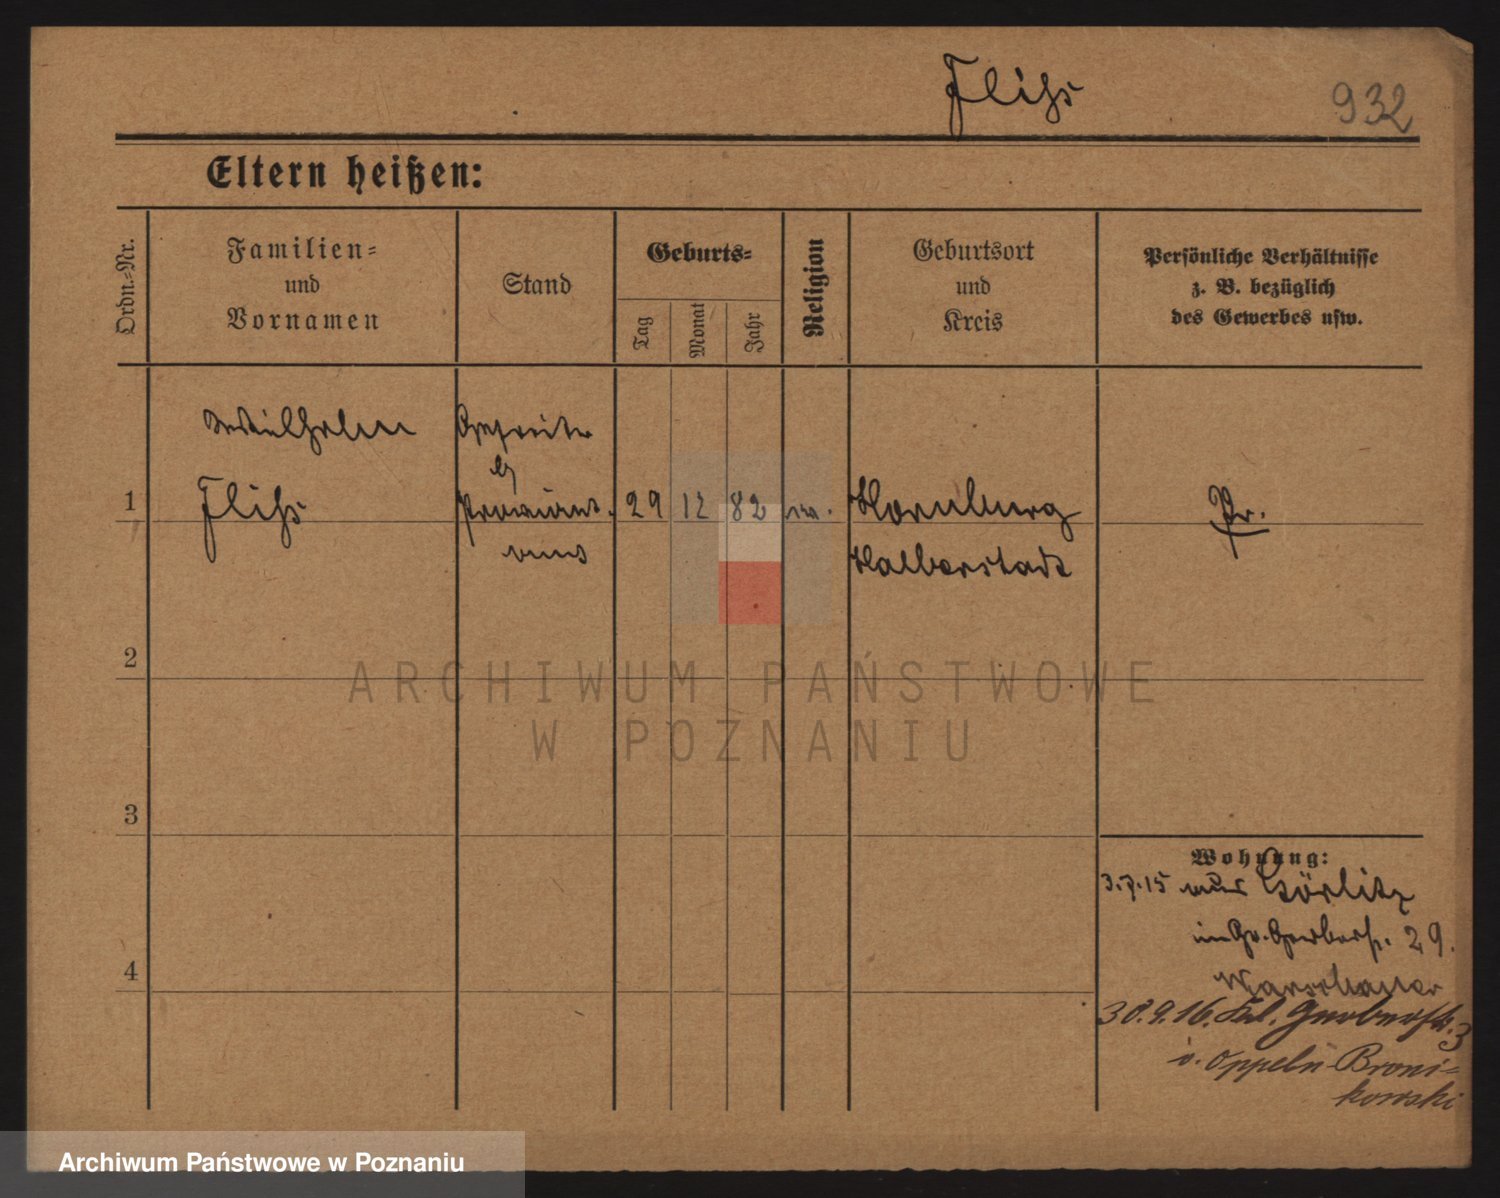 Flihs
932
Eltern heißen:
Ordn.-Nr.
Familien-
und
Vornamen
Stand
Geburts-
Tag
Monat
Jahr
Religion
Geburtsort
und
Kreis
Persönliche Verhältnisse
z. B. bezüglich
des Gewerbes usw.
Wilhelm
Gefreiter
1
Flihs
Proviant-
29
12
82
Hornburg
Pr.
Halberstadt
2
3
4
Wohnung:
3.7.15 aus Görlitz
in Gr. Gerberstr. 29.
Warschauer
30.9.16. Kl. Gerberstr. 3
v. Oppeln-Broni-
kowski
ARCHIWUM PAŃSTWOWE
W POZNANIU
Archiwum Państwowe w Poznaniu